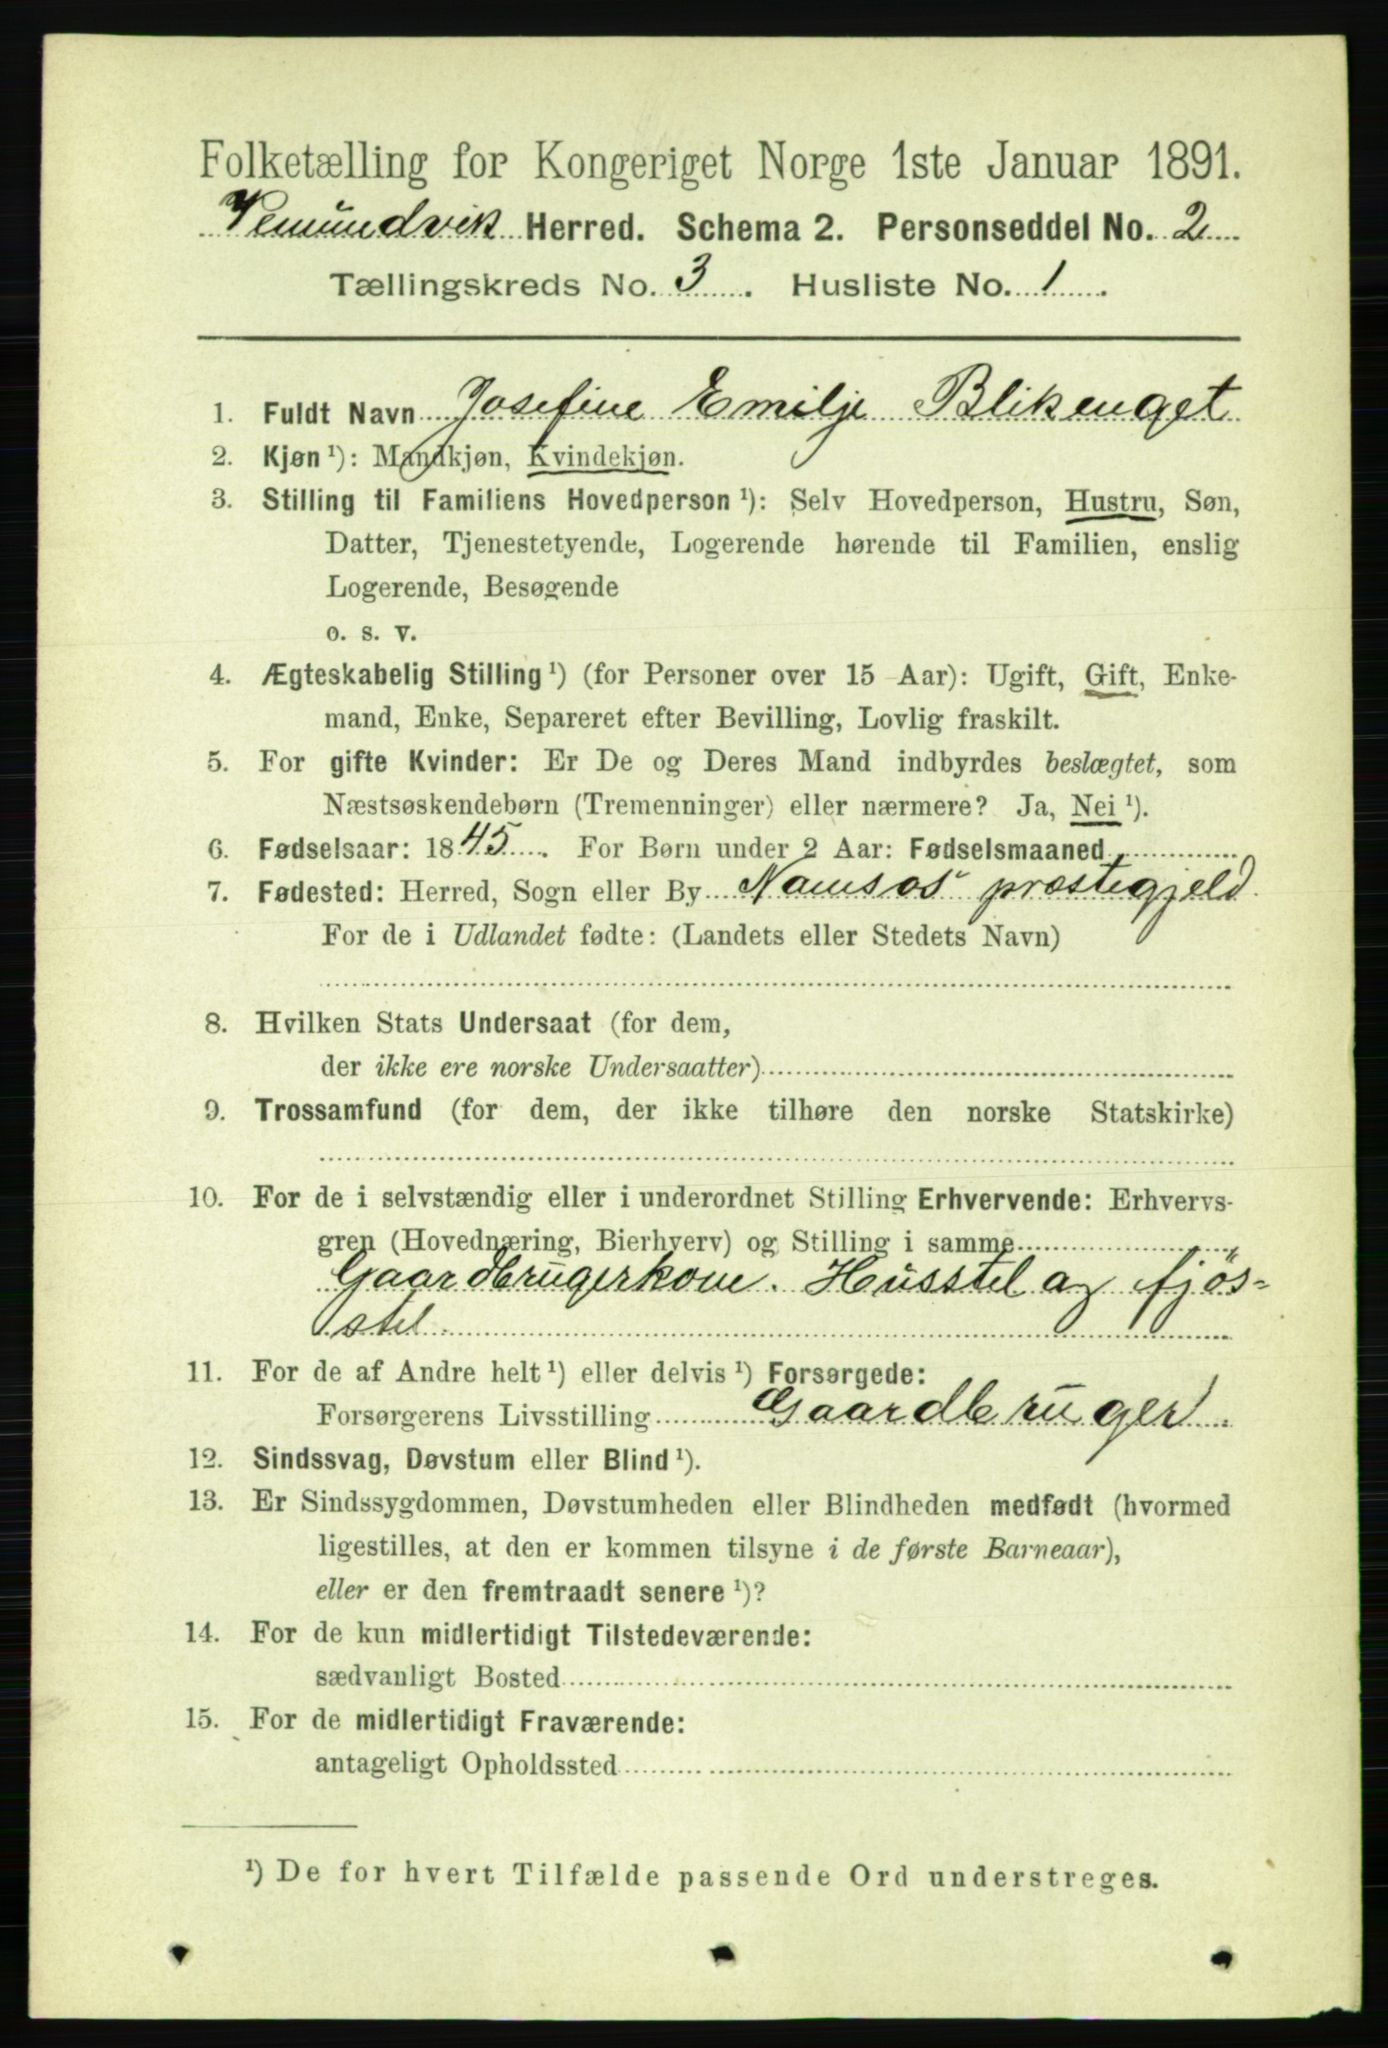 Folketælling for Kongeriget Norge 1ste Januar 1891.
Vemundvik Herred. Schema 2. Personseddel No. 2
Tællingskreds No. 3. Husliste No. 1.
1. Fuldt Navn Josefine Emilje Blikenget
2. Kjøn ¹): Mandkjøn, Kvindekjøn.
3. Stilling til Familiens Hovedperson ¹): Selv Hovedperson, Hustru, Søn,
Datter, Tjenestetyende, Logerende hørende til Familien, enslig
Logerende, Besøgende
o. s. v.
4. Ægteskabelig Stilling ¹) (for Personer over 15 Aar): Ugift, Gift, Enke-
mand, Enke, Separeret efter Bevilling, Lovlig fraskilt.
5. For gifte Kvinder: Er De og Deres Mand indbyrdes beslægtet, som
Næstsøskendebørn (Tremenninger) eller nærmere? Ja, Nei ¹).
6. Fødselsaar: 1845. For Børn under 2 Aar: Fødselsmaaned
7. Fødested: Herred, Sogn eller By Namsos præstegjeld
For de i Udlandet fødte: (Landets eller Stedets Navn)
8. Hvilken Stats Undersaat (for dem,
der ikke ere norske Undersaatter)
9. Trossamfund (for dem, der ikke tilhøre den norske Statskirke)
10. For de i selvstændig eller i underordnet Stilling Erhvervende: Erhvervs-
gren (Hovednæring, Bierhverv) og Stilling i samme
Gaardbrugerkone. Husstel og fjös-
stel
11. For de af Andre helt ¹) eller delvis ¹) Forsørgede:
Forsørgerens Livsstilling Gaardbruger
12. Sindssvag, Døvstum eller Blind ¹).
13. Er Sindssygdommen, Døvstumheden eller Blindheden medfødt (hvormed
ligestilles, at den er kommen tilsyne i de første Barneaar),
eller er den fremtraadt senere ¹)?
14. For de kun midlertidigt Tilstedeværende:
sædvanligt Bosted
15. For de midlertidigt Fraværende:
antageligt Opholdssted
¹) De for hvert Tilfælde passende Ord understreges.